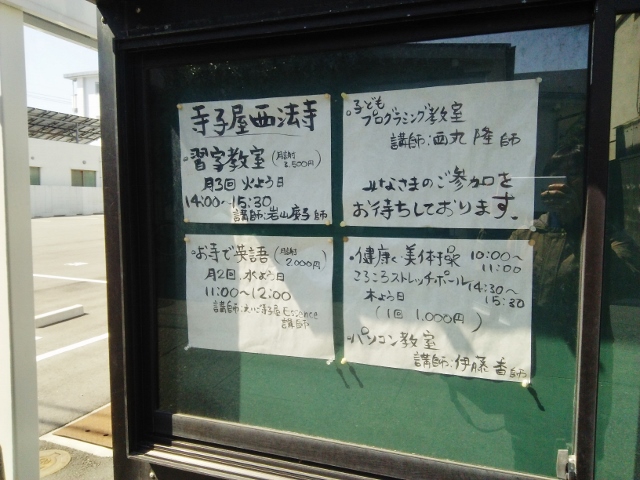 寺子屋西法寺
・習字教室(月謝3,500円)
月3回 火よう日
14:00~15:30
講師:岩山慶子師
・子ども
プログラミング教室
講師:西丸 隆師
みなさまのご参加を
お待ちしております。
・お寺で英語(月謝2000円)
月2回.水よう日
11:00~12:00
講師:えいご寺子屋Essence
講師
・健康く美体操 10:00~11:00
ころころストレッチ・ポール 14:30~15:30
木よう日
(1回 1,000円)
・パソコン教室
講師:伊藤香師